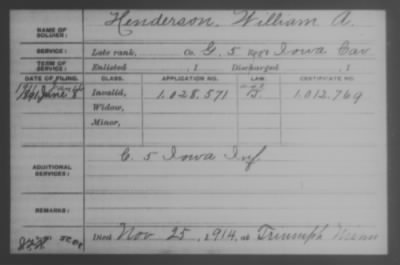 NAME OF SOLDIER: Henderson, William A.
SERVICE: Late rank, Co. G, 5 Reg't Iowa Cav
TERM OF SERVICE: Enlisted , 1 Discharged , 1
DATE OF FILING. CLASS. APPLICATION NO. LAW. CERTIFICATE NO.
1891 June 8 Invalid, 1.028.571 1.012.769
Widow,
Minor,
ADDITIONAL SERVICES: C. 5 Iowa Inf.
REMARKS:
Died Nov. 25, 1914, at Triumph Minn